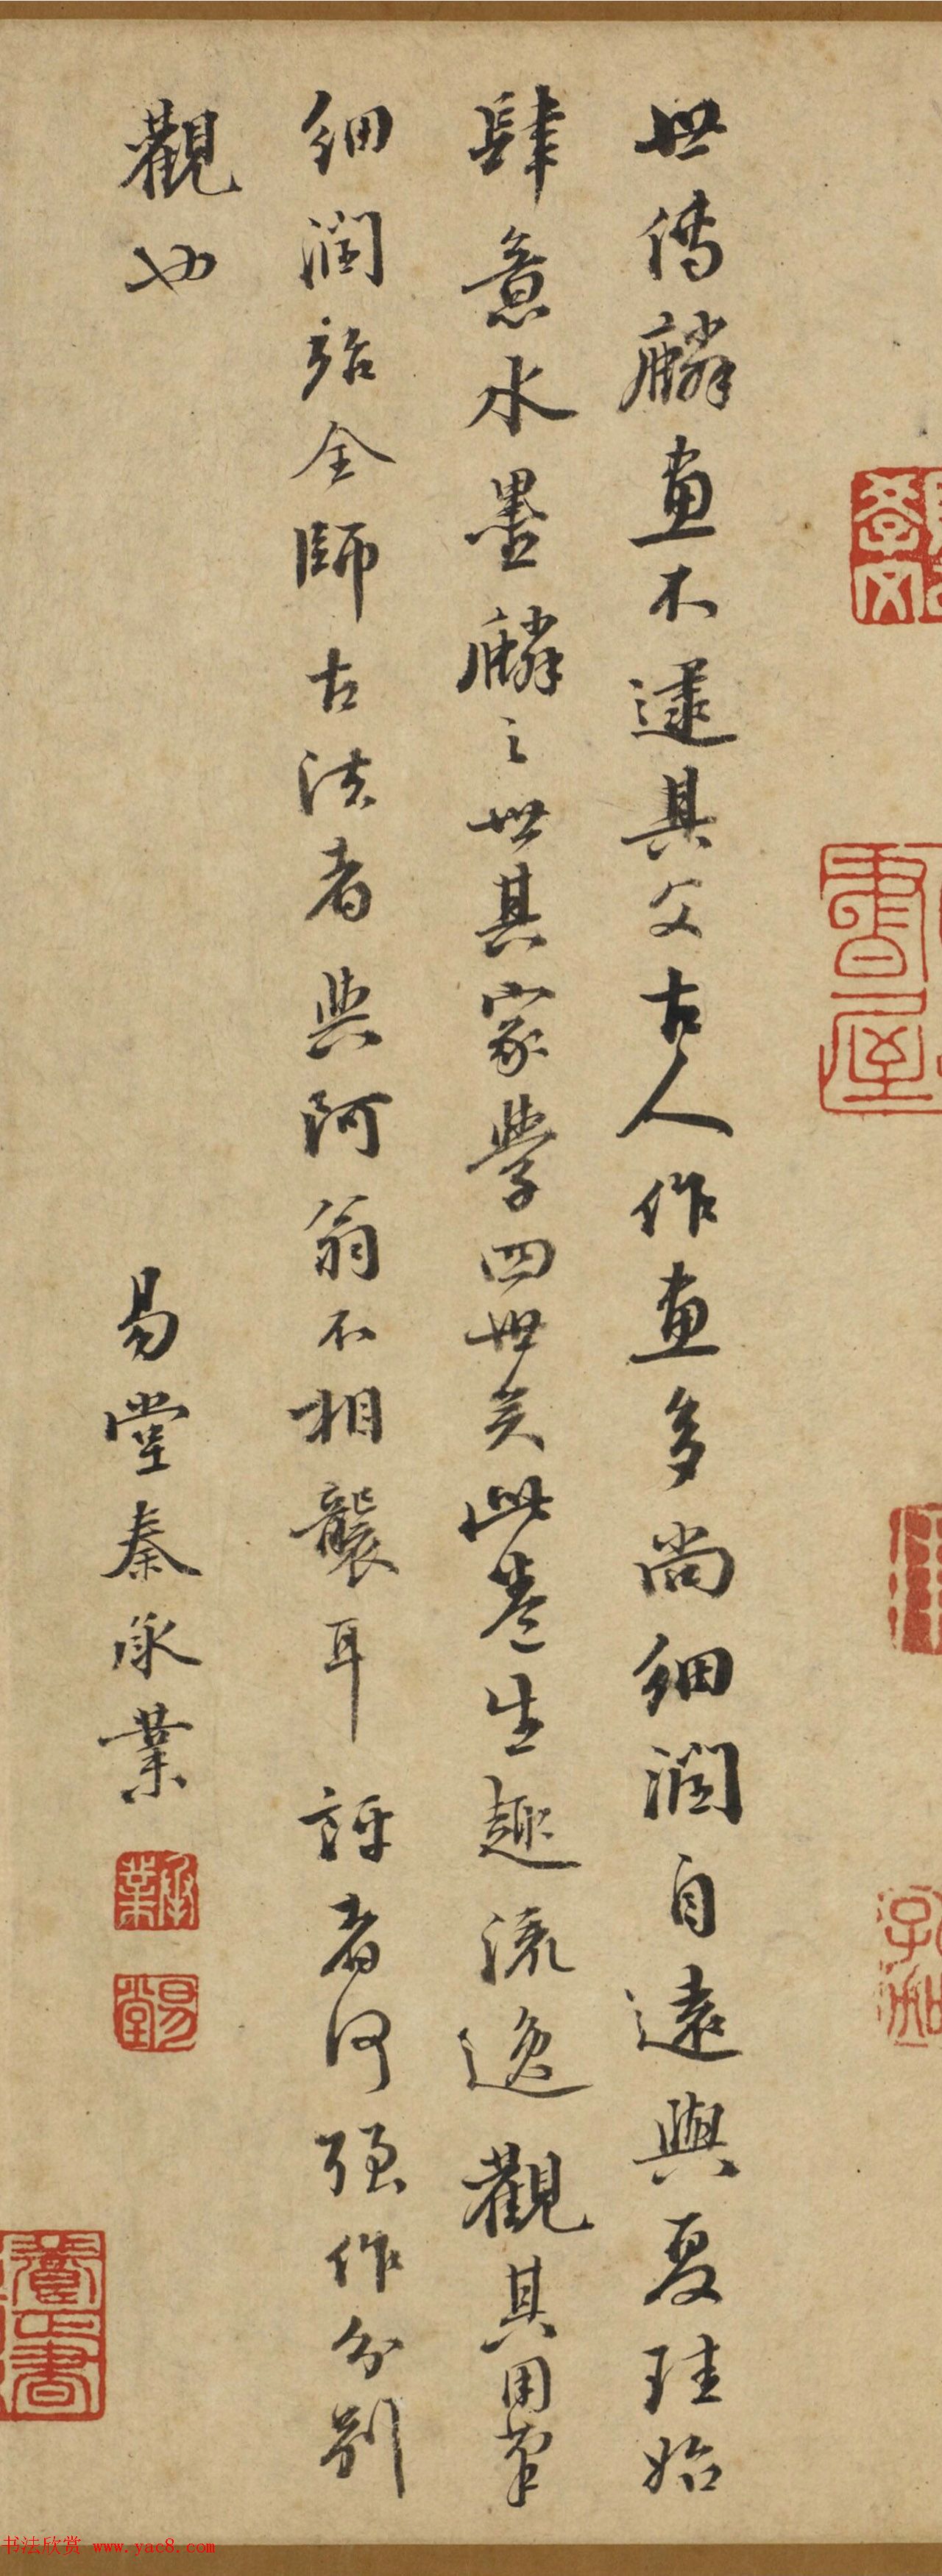 世傳麟畫不逮其父古人作畫多尚細潤自遠與夏珪始
肆意水墨麟之世其家學四世矣此卷生趣流逸觀其用筆
細潤殆全師古法者與阿翁不相襲耳評者何强作分别
觀也
易堂秦承業
承業
易堂
書屋
書法欣赏 www.yac8.com